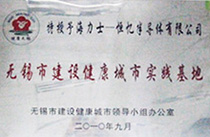 特授予海力士—恒忆半导体有限公司
无锡市建设健康城市实践基地
无锡市建设健康城市领导小组办公室
二〇一〇年九月